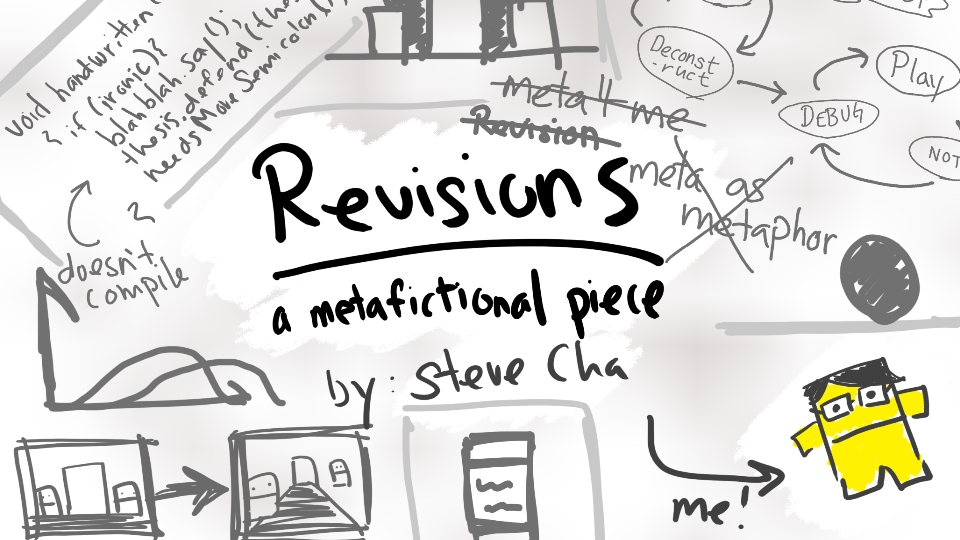 void handwritten(
{ if (ironic){
blahblah.say();
thesis.defend(thos
needsMoreSemicolons(
}
doesn't
compile
Deconst
-ruct
DEBUG
Play
NOT
meta 4 me
Revision
meta as
metaphor
Revisions
a metafictional piece
by: Steve Cha
me!